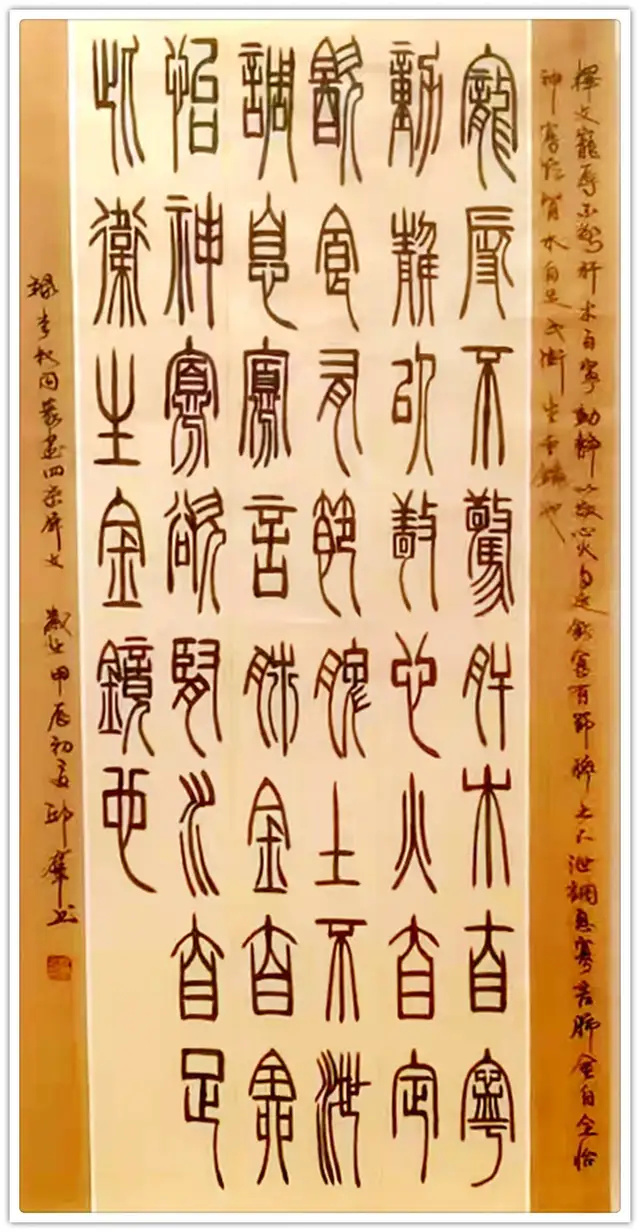 釋文寵辱不驚肝木自寧動靜以敬心火自定飲食有節脾土不泄調息寡言肺金自全怡
神寡欲腎水自足此衛生金鏡也
寵辱不驚肝木自寧
動靜以敬心火自定
飲食有節脾土不泄
調息寡言肺金自全
怡神寡欲腎水自足
此衛生金鏡也
錄李叔同篆書四條屏文 甲辰初夏邱書